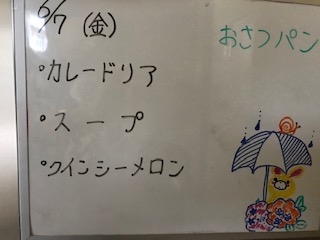 6/7 (金)
おさつパン
・カレードリア
・スープ
・クインシーメロン